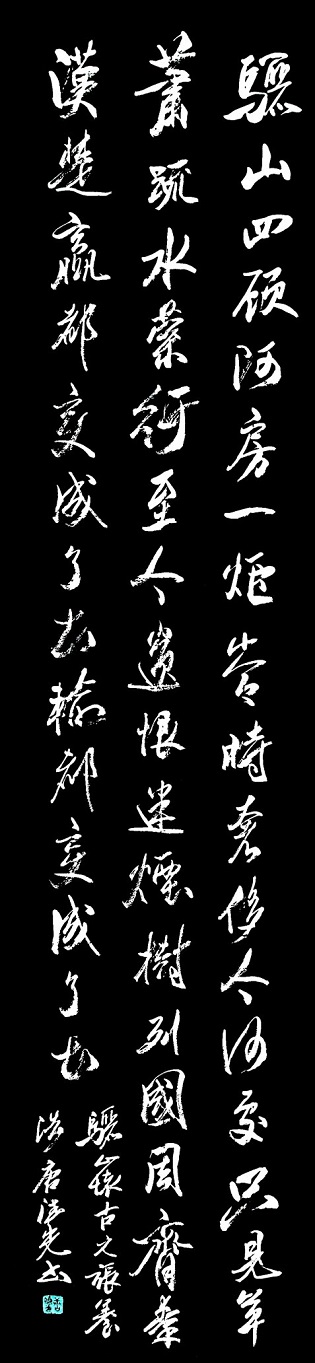 驪山四顾阿房一炬當時奢侈今何處只見草
蕭疏水縈紆至今遺恨迷煙樹列國周齊秦
漢楚嬴都变成了土輸都变成了土
驪山懷古元張養
浩唐先书